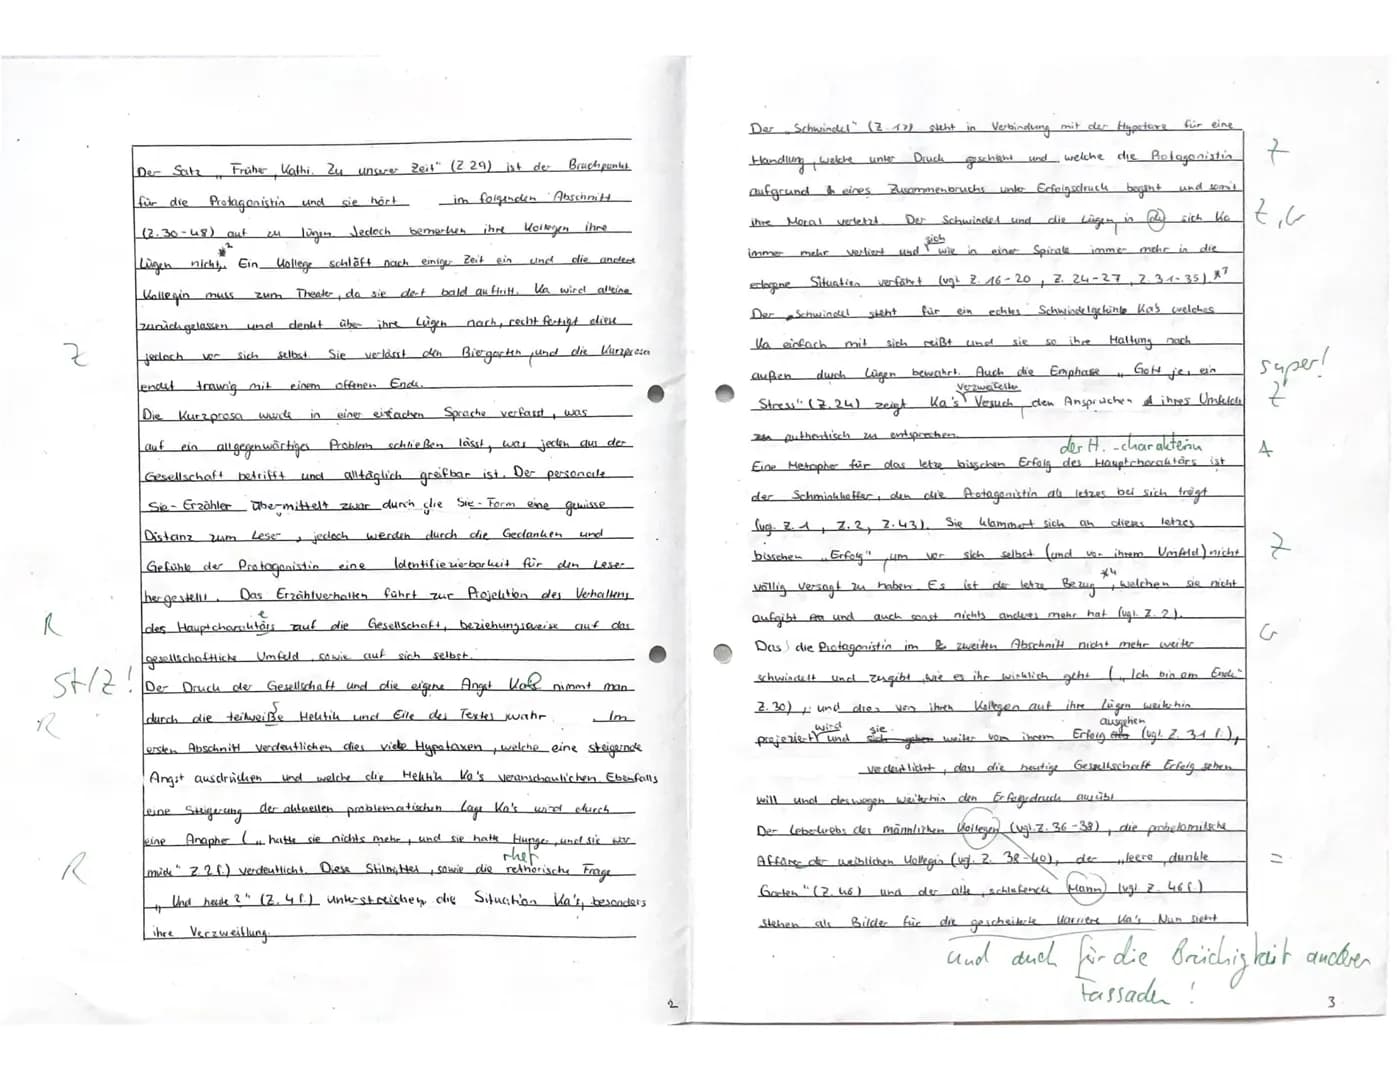 Der Satz „Früher, Kathi. Zu unserer Zeit" (Z 29) ist der Bruchpunkt
für die Protagonistin und sie hört im folgenden Abschnitt
(Z.30-48) auf zu lügen. Jedoch bemerken ihre Kollegen ihre
*2
Lügen nicht. Ein Kollege schläft nach einiger Zeit ein und die andere
Kollegin muss zum Theater, da sie dort bald auftritt. Ka wird alleine
zurückgelassen und denkt über ihre Lügen nach, rechtfertigt diese
Z jedoch vor sich selbst. Sie verlässt den Biergarten, und die Kurzprosa
endet traurig mit einem offenen Ende.
Die Kurzprosa wurde in einer einfachen Sprache verfasst, was
auf ein allgegenwärtiges Problem schließen lässt, was jeden aus der
Gesellschaft betrifft und alltäglich greifbar ist. Der personale
Sie-Erzähler übermittelt zwar durch die Sie-Form eine gewisse
Distanz zum Leser, jedoch werden durch die Gedanken und
Gefühle der Protagonistin eine Identifizierbarkeit für den Leser
hergestellt. Das Erzählverhalten führt zur Projektion des Verhaltens
R des Hauptcharaktärs auf die Gesellschaft, beziehungsweise auf das
e
gesellschaftliche Umfeld, sowie auf sich selbst.
St/Z! Der Druck der Gesellschaft und die eigene Angst Kas nimmt man
R durch die teilweiße Hektik und Eile des Textes wahr. Im
s
ersten Abschnitt verdeutlichen dies viele Hypotaxen, welche eine steigernde
Angst ausdrücken und welche die Hektik Ka's veranschaulichen. Ebenfalls
eine Steigerung der aktuellen problematischen Lage Ka's wird durch
eine Anapher („hatte sie nichts mehr, und sie hatte Hunger, und sie war
müde" Z 2 f.) verdeutlicht. Diese Stilmittel, sowie die rethorische Frage
R rhet
„Und heute?" (Z. 4 f.) unterstreichen die Situation Ka's, besonders
ihre Verzweiflung.
2
Der „Schwindel" (Z. 17) steht in Verbindung mit der Hypotaxe für eine
Handlung, welche unter Druck geschieht und welche die Protagonistin Z
aufgrund eines Zusammenbruchs unter Erfolgsdruck begeht und somit
ihre Moral verletzt. Der Schwindel und die Lügen in die sich Ka Z, G
immer mehr verliert und sich wie in einer Spirale immer mehr in die
erlogene Situation verfährt (vgl. Z. 16-20, Z. 24-27, Z. 31-35).
Der „Schwindel steht für ein echtes Schwindelgefühl Ka's welches
Ka einfach mit sich reißt und sie so ihre Haltung nach
außen durch Lügen bewahrt. Auch die Emphase „Gott je, ein super!
Stress" (Z. 24) zeigt Ka's verzweifelten Versuch, den Ansprüchen ihres Umfelds Z
authentisch zu entsprechen.
der H.-charakterin
Eine Metapher für das letze bisschen Erfolg des Hauptcharaktärs ist A
der Schminkkoffer, den die Protagonistin als letzes bei sich trägt
(vg. Z. 1, Z. 2, Z. 43). Sie klammert sich an dieses letzes
bisschen „Erfolg", um vor sich selbst (und von ihrem Umfeld) nicht Z
völlig versagt zu haben. Es ist der letze Bezug, welchen sie nicht
*4
aufgibt und auch sonst nichts anderes mehr hat (vgl. Z. 2).
Das die Protagonistin im zweiten Abschnitt nicht mehr weiter G
schwindelt und zugibt wie es ihr wirklich geht („Ich bin am Ende"
Z. 30), und dies von ihren Kollegen auf ihre Lügen weiterhin
projeziert wird und sie weiter von ihrem Erfolg ausgehen (vgl. Z. 31 f.),
verdeutlicht, dass die heutige Gesellschaft Erfolg sehen
will und deswegen weiterhin den Erfolgsdruck ausübt
Der Leberkrebs des männlichen Kollegen (vgl. Z. 36-38), die probelamitsche
Affäre der weiblichen Kollegin (vgl. Z. 38-40), der „leere, dunkle =
Garten" (Z. 46) und der alte, schlafende Mann (vgl Z. 46 f.)
stehen als Bilder für die gescheiterte Karriere Ka's. Nun sieht
und auch für die Brüchigkeit anderer
Fassaden!
3